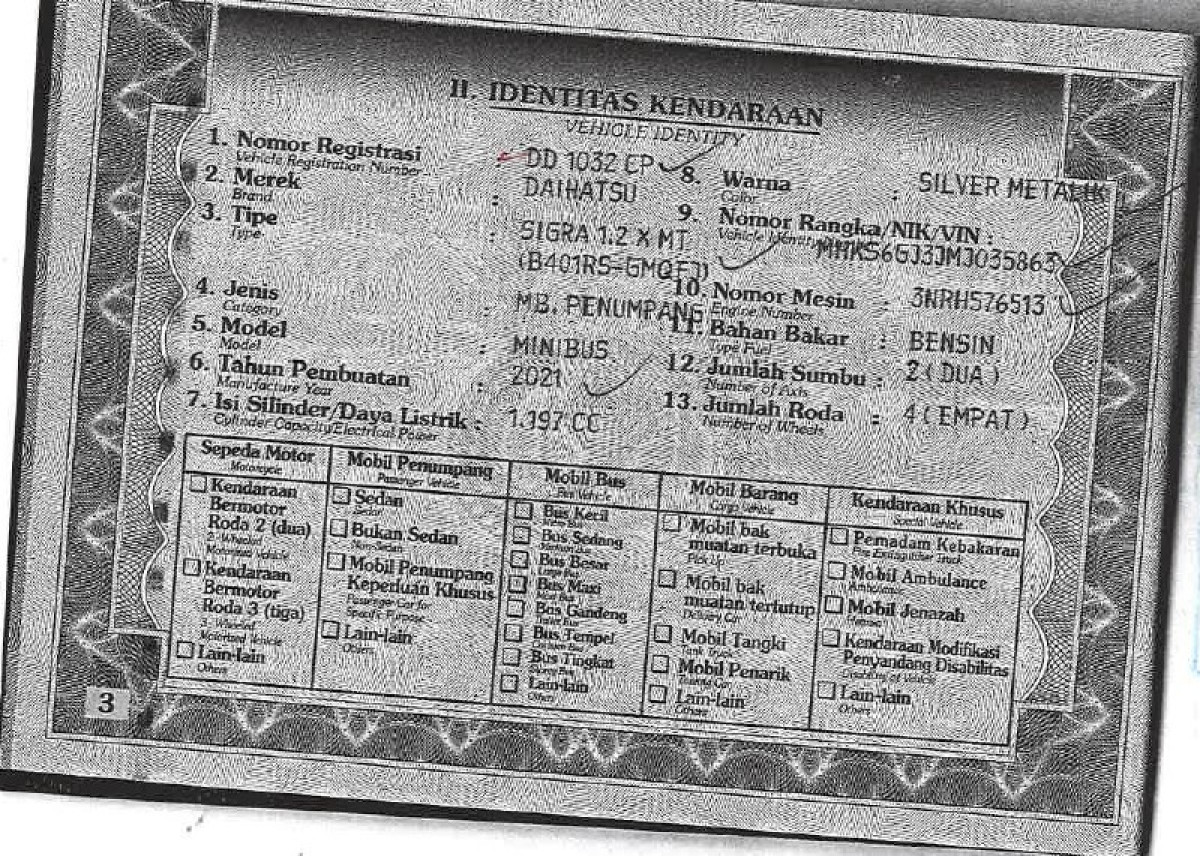 II. IDENTITAS KENDARAAN
VEHICLE IDENTITY
1. Nomor Registrasi : DD 1032 EP
Vehicle Registration Number
2. Merek : DAIHATSU
Brand
3. Tipe : SIGRA 1.2 X MT
Type
(B401RS-GMQFJ)
4. Jenis : MB. PENUMPANG
Category
5. Model : MINIBUS
Model
6. Tahun Pembuatan : 2021
Manufacture Year
7. Isi Silinder/Daya Listrik : 1.197 CC
Cylinder Capacity/Electrical Power
8. Warna : SILVER METALIK
Color
9. Nomor Rangka/NIK/VIN :
Vehicle Identity
MHKS6GJ3JMJ035863
10. Nomor Mesin : 3NRH576513
Engine Number
11. Bahan Bakar : BENSIN
Type Fuel
12. Jumlah Sumbu : 2 ( DUA )
Number of Axis
13. Jumlah Roda : 4 ( EMPAT )
Number of Wheels
Sepeda Motor
Motorcycle
Kendaraan
Bermotor
Roda 2 (dua)
2- Wheeled
Motorized Vehicle
Kendaraan
Bermotor
Roda 3 (tiga)
3- Wheeled
Motorized Vehicle
Lain-lain
Others
Mobil Penumpang
Passenger Vehicle
Sedan
Sedan
Bukan Sedan
Non-Sedan
Mobil Penumpang
Keperluan Khusus
Passenger Car for
Specific Purpose
Lain-lain
Others
Mobil Bus
Bus Vehicle
Bus Kecil
Bus Sedang
Bus Besar
Bus Maxi
Bus Gandeng
Bus Tempel
Bus Tingkat
Lain-lain
Others
Mobil Barang
Cargo Vehicle
Mobil bak
muatan terbuka
Pick Up
Mobil bak
muatan tertutup
Delivery Car
Mobil Tangki
Tank Truck
Mobil Penarik
Lain-lain
Others
Kendaraan Khusus
Special Vehicle
Pemadam Kebakaran
Fire Extinguisher Truck
Mobil Ambulance
Ambulance
Mobil Jenazah
Kendaraan Modifikasi
Penyandang Disabilitas
Disability of Vehicle
Lain-lain
Others
3